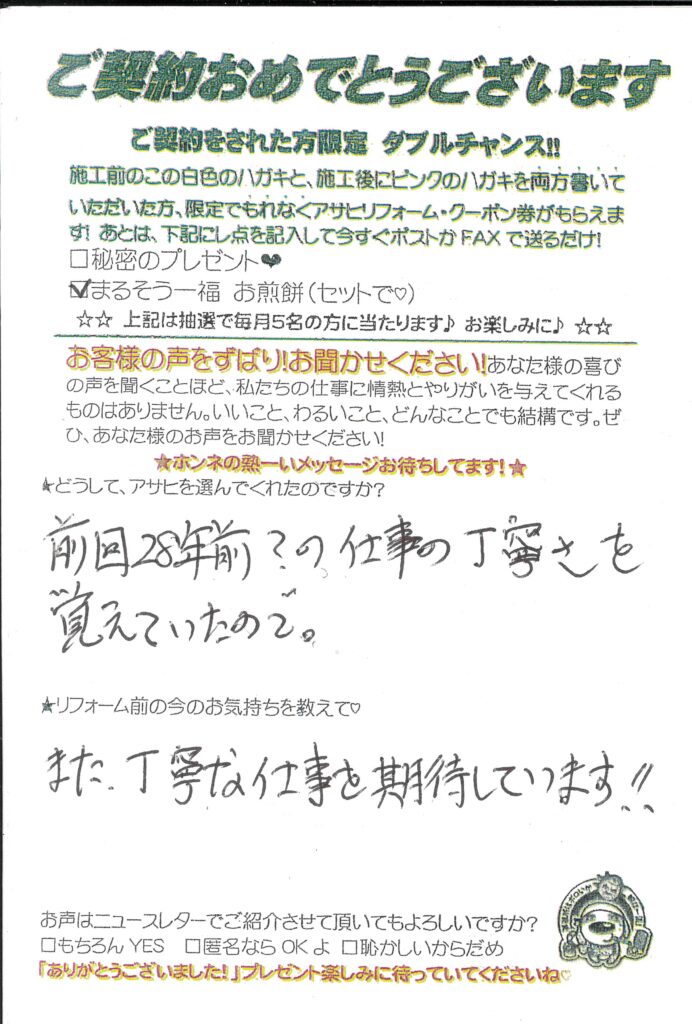 ご契約おめでとうございます
ご契約をされた方限定 ダブルチャンス!!
施工前のこの白色のハガキと、施工後にピンクのハガキを両方書いて
いただいた方、限定でもれなくアサヒリフォーム・クーポン券がもらえま
す! あとは、下記にレ点を記入して今すぐポストかFAXで送るだけ!
□秘密のプレゼント♥
☑まるそう一福 お煎餅(セットで♡)
☆☆ 上記は抽選で毎月5名の方に当たります♪ お楽しみに♪ ☆☆
お客様の声をずばり!お聞かせください!あなた様の喜び
の声を聞くことほど、私たちの仕事に情熱とやりがいを与えてくれる
ものはありません。いいこと、わるいこと、どんなことでも結構です。ぜ
ひ、あなた様のお声をお聞かせください!
★ホンネの熱ーいメッセージお待ちしてます!★
★どうして、アサヒを選んでくれたのですか?
前回28年前?の仕事の丁寧さを
覚えていたので。
★リフォーム前の今のお気持ちを教えて♡
また、丁寧な仕事を期待しています!!
お声はニュースレターでご紹介させて頂いてもよろしいですか?
□もちろんYES □匿名ならOKよ □恥かしいからだめ
「ありがとうございました!」プレゼント楽しみに待っていてくださいね♡